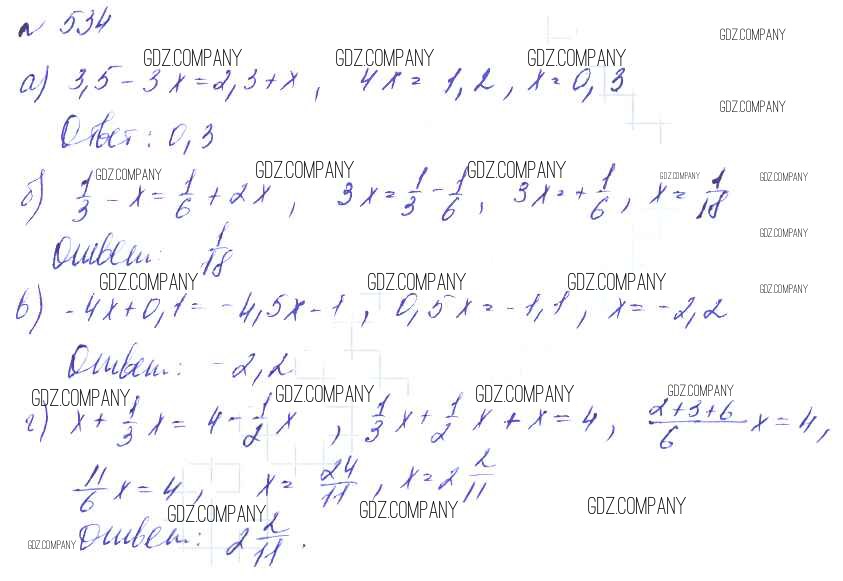 № 534
GDZ.COMPANY
GDZ.COMPANY GDZ.COMPANY GDZ.COMPANY
а) 3,5 - 3x = 2,3 + x, 4x = 1,2, x = 0,3
GDZ.COMPANY
Ответ: 0,3
GDZ.COMPANY GDZ.COMPANY GDZ.COMPANY GDZ.COMPANY GDZ.COMPANY
б) 1/3 - x = 1/6 + 2x, 3x = 1/3 - 1/6, 3x = + 1/6, x = 1/18
GDZ.COMPANY
Ответ: 1/18
GDZ.COMPANY GDZ.COMPANY GDZ.COMPANY GDZ.COMPANY
в) -4x + 0,1 = -4,5x - 1, 0,5x = -1,1, x = -2,2
Ответ: -2,2
GDZ.COMPANY GDZ.COMPANY GDZ.COMPANY GDZ.COMPANY
г) x + 1/3 x = 4 - 1/2 x, 1/3 x + 1/2 x + x = 4, (2+3+6)/6 x = 4,
11/6 x = 4, x = 24/11, x = 2 2/11
GDZ.COMPANY GDZ.COMPANY GDZ.COMPANY
GDZ.COMPANY Ответ: 2 2/11.